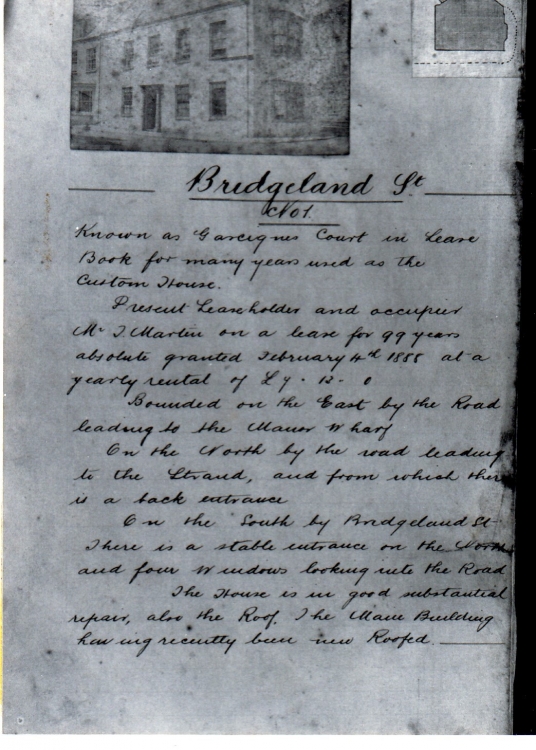 Bridgeland St
No 1.
Known as Gascignes Court in Lease
Book for many years used as the
Custom House.
Present Leaseholder and occupier
Mr J Martin on a lease for 99 years
absolute granted February 4th 1888 at a
yearly rental of £ 7 - 13 - 0
Bounded on the East by the Road
leading to the Manor Wharf
On the North by the road leading
to the Strand, and from which there
is a back entrance
On the South by Bridgeland St
There is a stable entrance on the North
and four Windows looking into the Road
The House is in good substantial
repair, also the Roof. The Main Building
having recently been new Roofed.